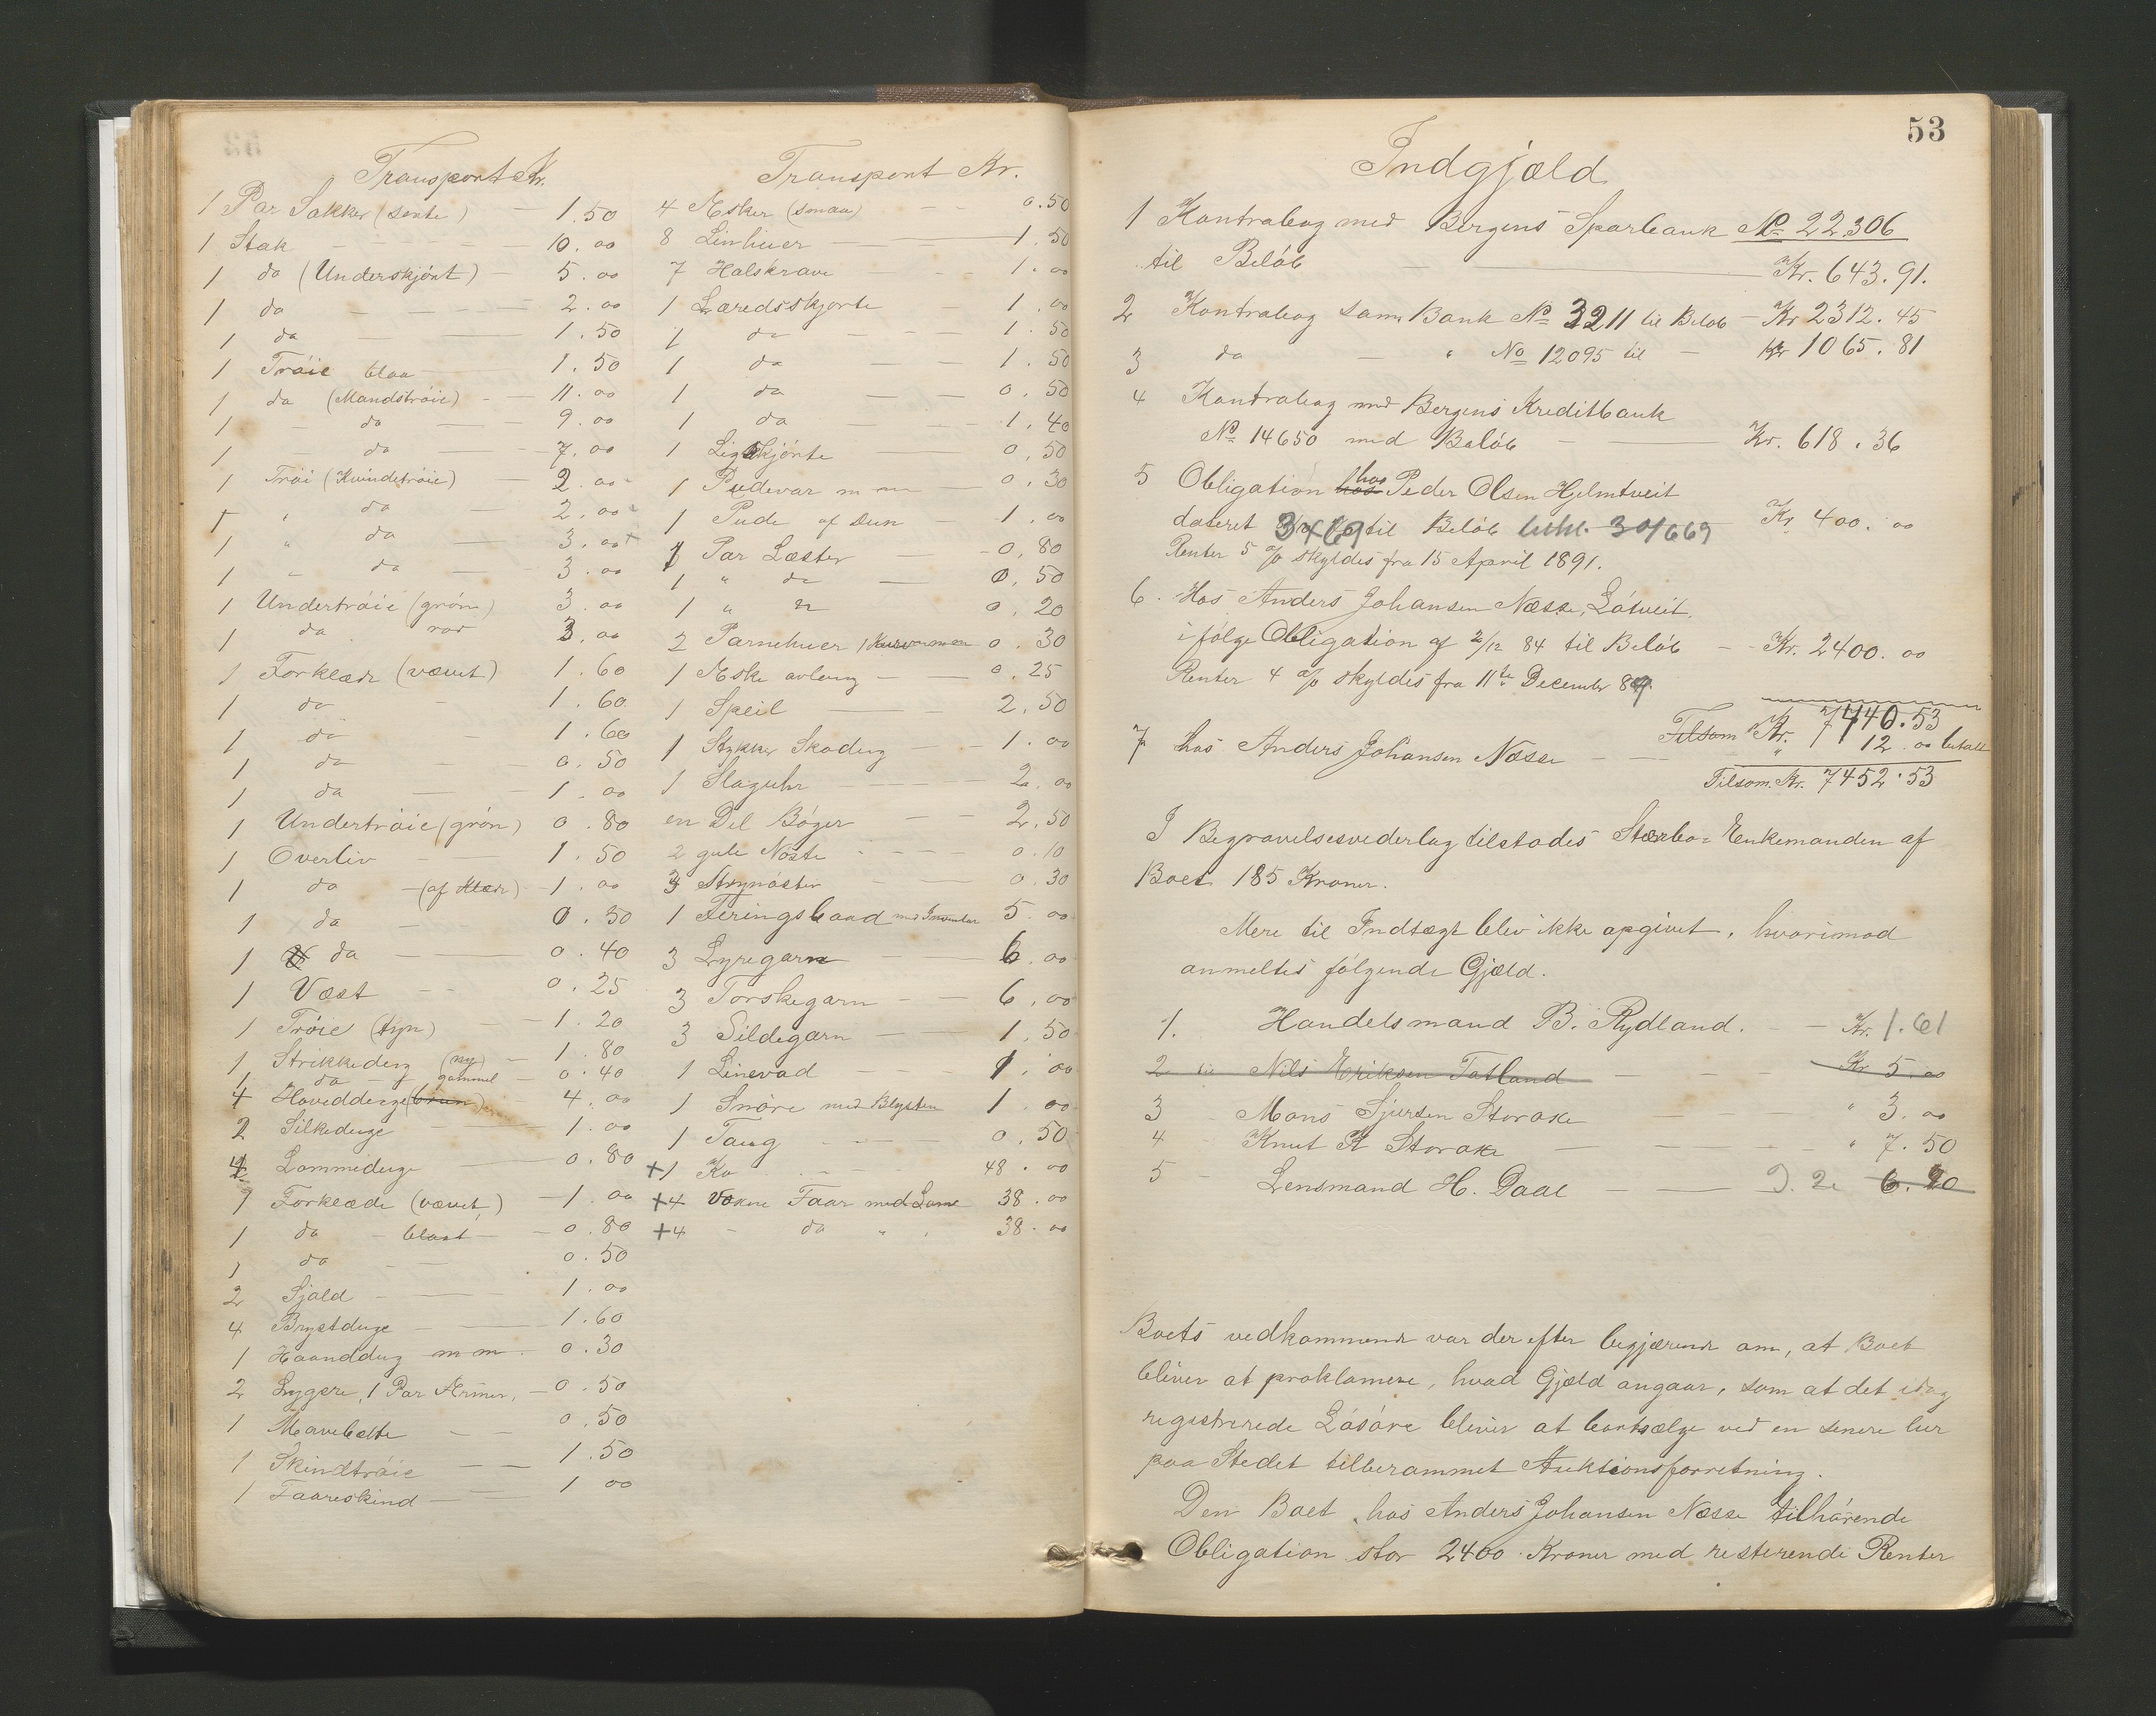 Transport Kr.
1 Par Sakker (sorte) 1.50
1 Stak 10.00
1 do (Underskjört) 5.00
1 do 2.00
1 do 1.50
1 Tröie blaa 1.50
1 do (Mandströie) 11.00
1 do 9.00
1 do 7.00
1 Tröi (Kvindetröie) 2.00
1 " do 2.00
1 " do 3.00
1 " do 3.00
1 Undertröie (grön) 3.00
1 do rød 3.00
1 Forklæde (vævet) 1.60
1 do 1.60
1 do 1.60
1 do 0.50
1 do 1.00
1 Undertröie (grön) 0.80
1 Overliv 1.50
1 do (af Klæde) 1.00
1 do 0.50
1 do 0.40
1 Væst 0.25
1 Tröie (tyn) 1.20
1 Strikkedeig (ny) 1.80
1 do gammel 0.40
4 Hoveddeuge (brun) 4.00
2 Silkeduge 1.00
4 Lommeduge 0.80
1 Forklæde (vævet) 1.00
1 do blaat 0.80
1 do 0.50
2 Sjald 1.00
4 Brystduge 1.60
1 Haanddug m m 0.30
2 Lygter, 1 Par Ærmer, 0.50
1 Mavebælte 0.50
1 Skindtröie 1.50
1 Faareskind 1 00
Transport Kr.
4 Æsker (smaa) 0.50
8 Linhuer 1.50
7 Halskrave 1.00
1 Læredsskjorte 1.00
1 do 1.50
1 do 1.50
1 do 0.50
1 do 1.40
1 Ligskjörte 0.50
1 Pudevar m m 0.30
1 Pude af Dun 1.00
1 Par Læster 0.80
1 " do 0.50
1 " " 0.20
2 Barnehuer 0.30
1 Æske avlang 0.25
1 Speil 2.50
1 Stykker Skodeig 1.00
1 Slaguhr 2.00
en Del Bøger 2.50
2 gule Nöste 0.10
3 Strynöster 0.30
1 Færingsbaad med Inventar 5.00
3 Lyregarn 6.00
3 Torskegarn 6.00
3 Sildegarn 1.50
1 Linevad 1.00
1 Snöre med Blysten 1.00
1 Taug 0.50
+1 Ko 48.00
+4 Voxne Faar med Lam 38.00
+4 do " " 38.00
53
Indgjæld
1 Kontrabog med Bergens Sparbank № 22306
til Belöb Kr. 643.91.
2 Kontrabog samme Bank № 3211 til Belöb Kr 2312.45
3 do " No 12095 til Kr 1065.81
4 Kontrabog med Bergens Kreditbank
№ 14650 med Belöb Kr. 618.36
5 Obligation hos hos Peder Olsen Hjelmtveit
dateret til Belöb Kr 400.00
Renter 5 % skyldes fra 15 April 1891.
6. Hos Anders Johansen Næsse, Låtveit,
ifölge Obligation af 2/12 84 til Belöb Kr. 2400.00
Renter 4 % skyldes fra 11te December 89.
Tilsam Kr. 7440.53
7 hos Anders Johansen Næsse " 12.00 betalt
Tilsam. Kr. 7452.53
I Begravelsesvederlag tilstodes Stærbo-Enkemanden af
Boet 185 Kroner.
Mere til Indtægt blev ikke opgivet, hvorimod
anmeltes følgende Gjæld.
1. Handelsmand B. Rydland. Kr. 1.61
2 Nils Eriksen Tatland Kr 5.00
3 Mons Sjursen Storaker " 3.00
4 Knut K Storaker " 7.50
5 Lensmand H. Daae 9.20 6.20
Boets vedkommende var der efter begjærende om, at Boet
bliver at proklamere, hvad Gjæld angaar, som at det idag
registrerede Lösöre bliver at bortsælge ved en senere her
paa Stedet tilberammet Auktionsforretning.
Den Boet, hos Anders Johansen Næsse tilhörende
Obligation stor 2400 Kroner med resterende Renter